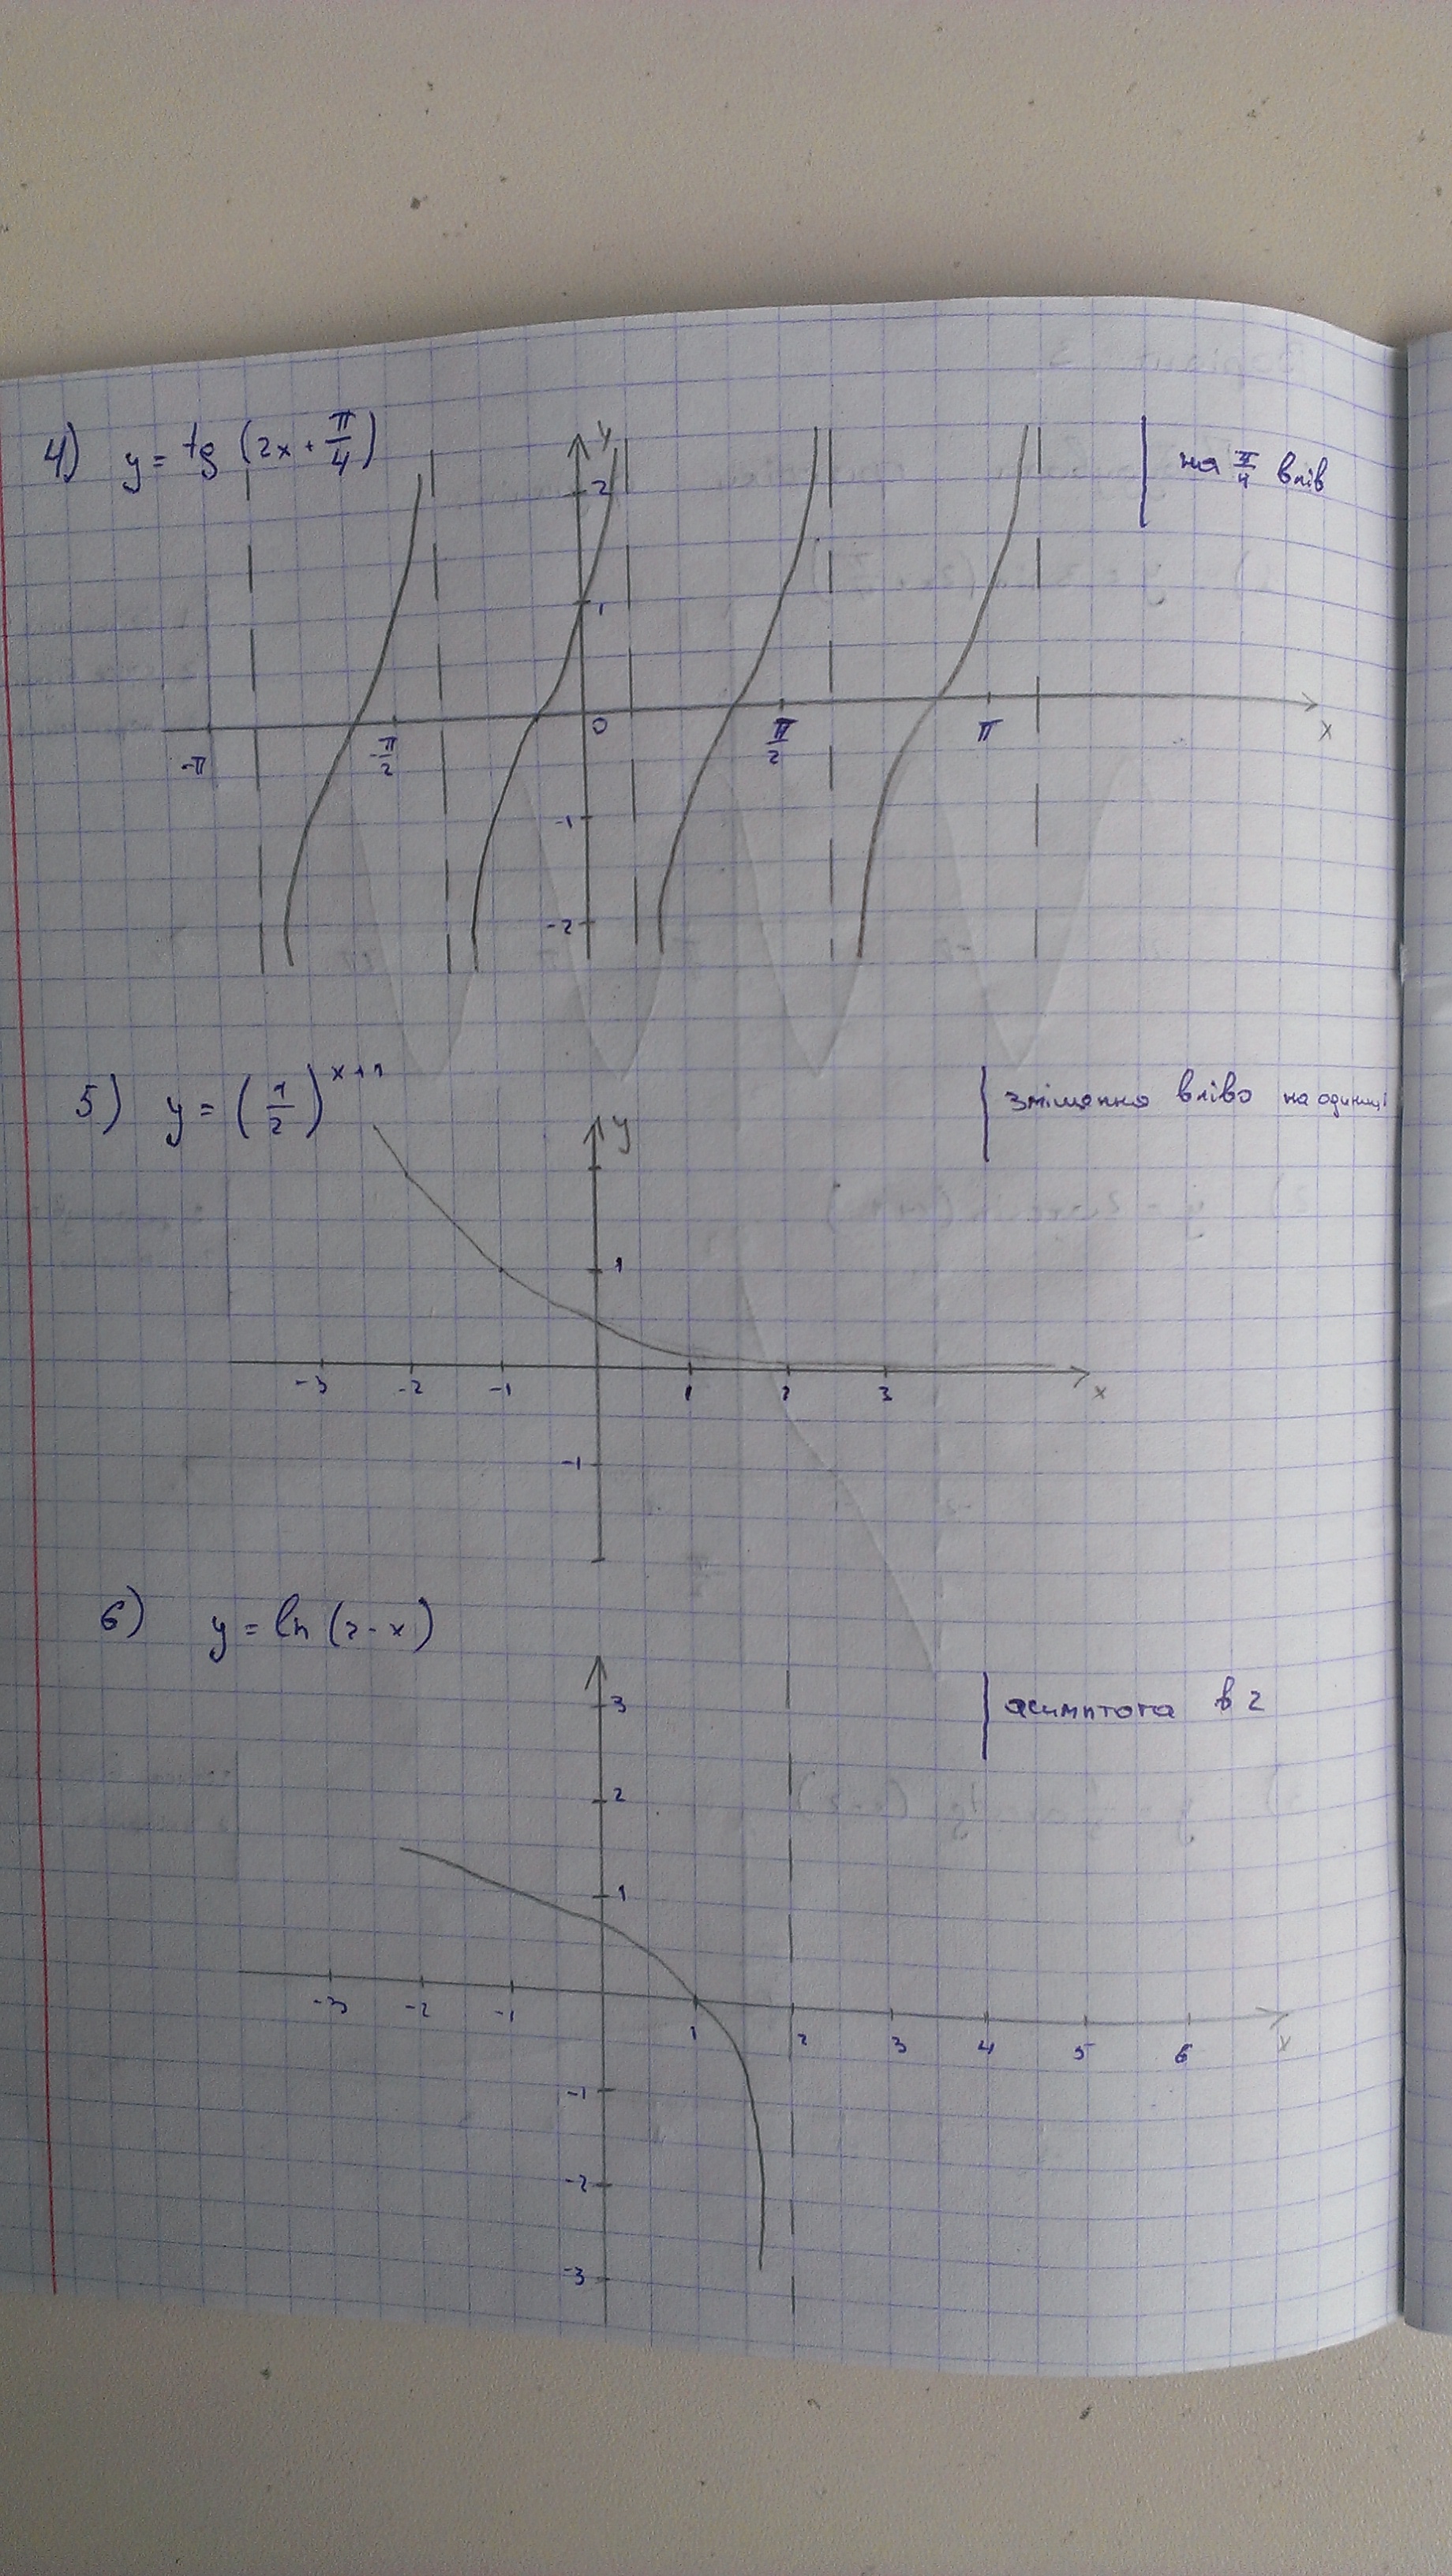 4) y = tg (2x + π/4)
на π/4 влів
y
2
1
-π
-π/2
0
π/2
π
x
-1
-2
5) y = (1/2)^(x+1)
зміщення вліво на одиниці
y
1
-3 -2 -1 1 2 3
x
-1
6) y = ln (2-x)
асимптота в 2
3
2
1
-3 -2 -1 1 2 3 4 5 6
x
-1
-2
-3